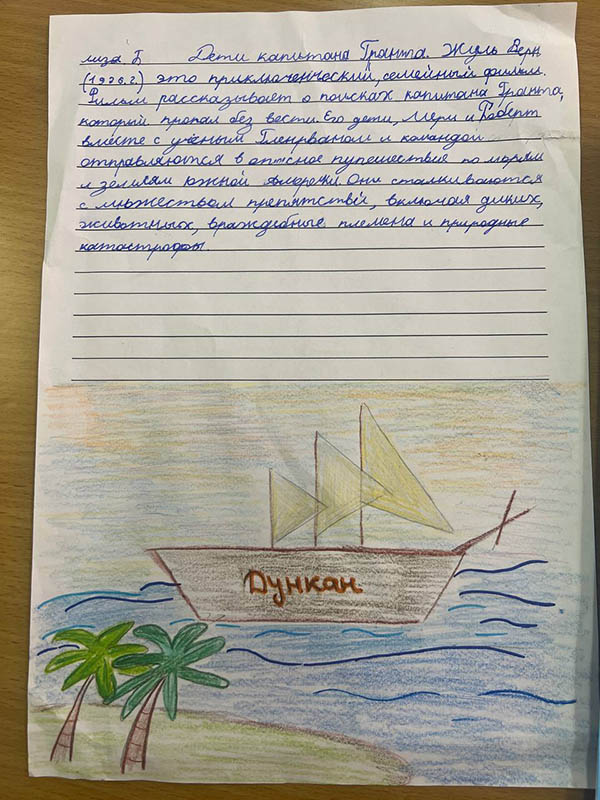 лиза Б Дети капитана Гранта. Жуль Верн
(1926.г.) это приключенческий, семейный фильм.
Фильм рассказывает о поисках капитана Гранта,
который пропал без вести. Его дети, Мери и Роберт
вместе с учёным Гленрваном и командой
отправляются в опасное путешествие по морям
и землям южной Америки. Они сталкиваются
с множеством препятствий, включая диких,
животных, враждебные племена и природные
катастрофы.
Дункан